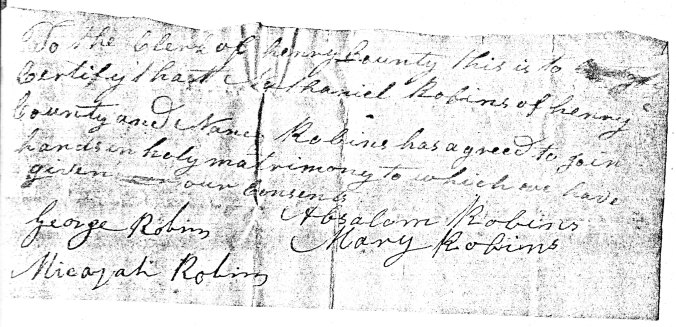 To the Clerk of henry County this is to
Certify that Nathaniel Robins of henry
County and Nancy Robins has agreed to join
hands in holy matrimony to which we have
given our Consens
George Robins Absalom Robins
Mary Robins
Micajah Robins